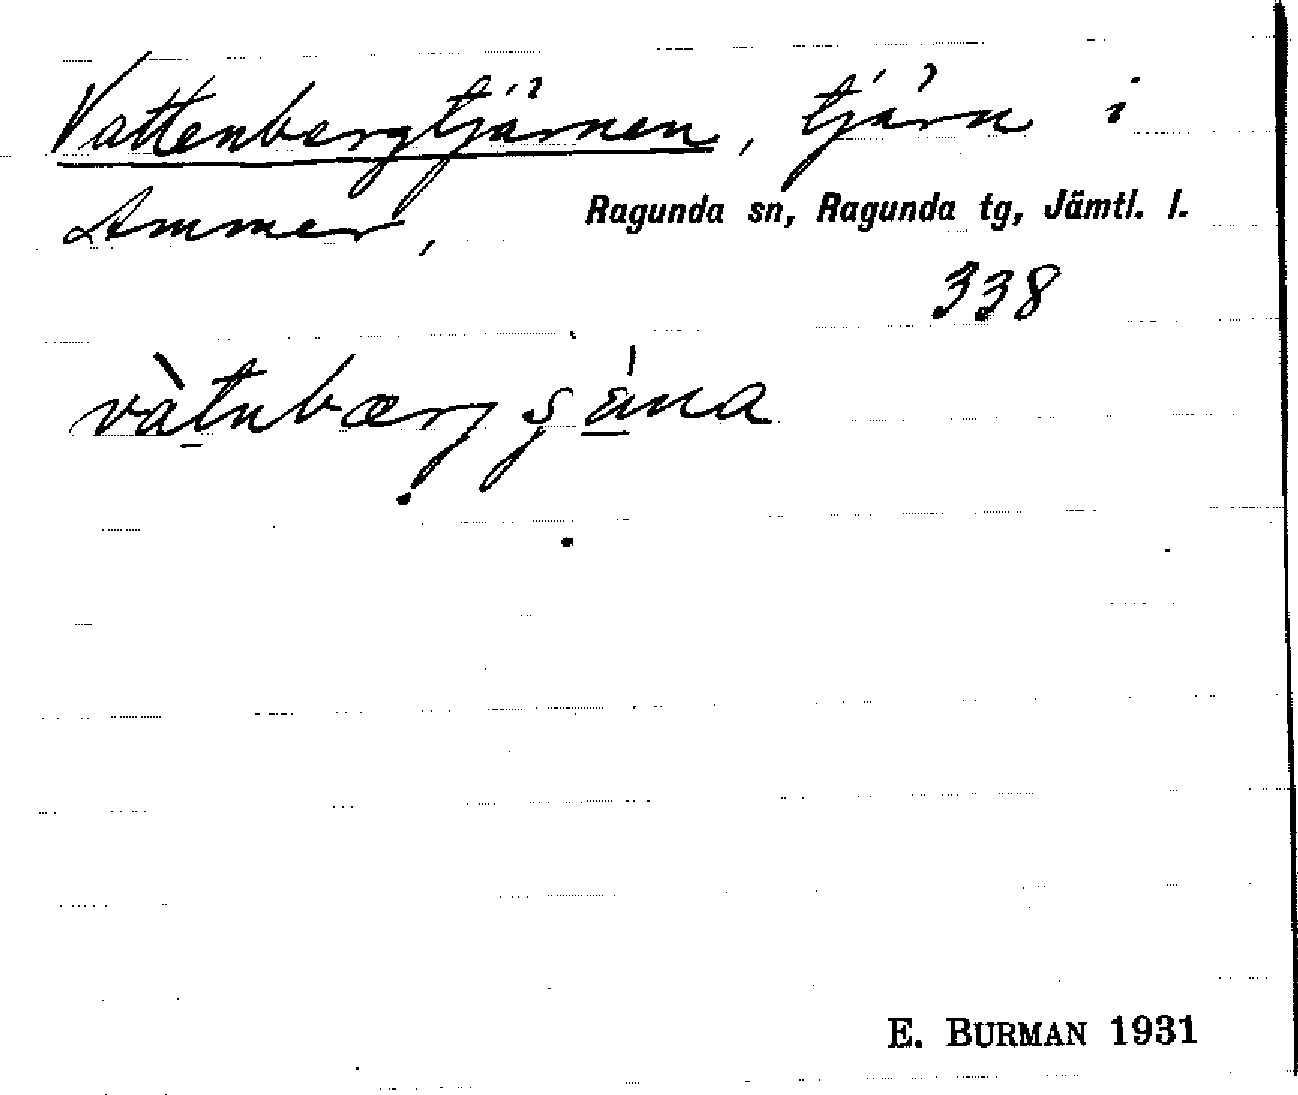 Vattenbergtjärnen, tjärn i
Ammer, Ragunda sn, Ragunda tg, Jämtl. l.
338
vàtnbærg ʂána
E. BURMAN 1931